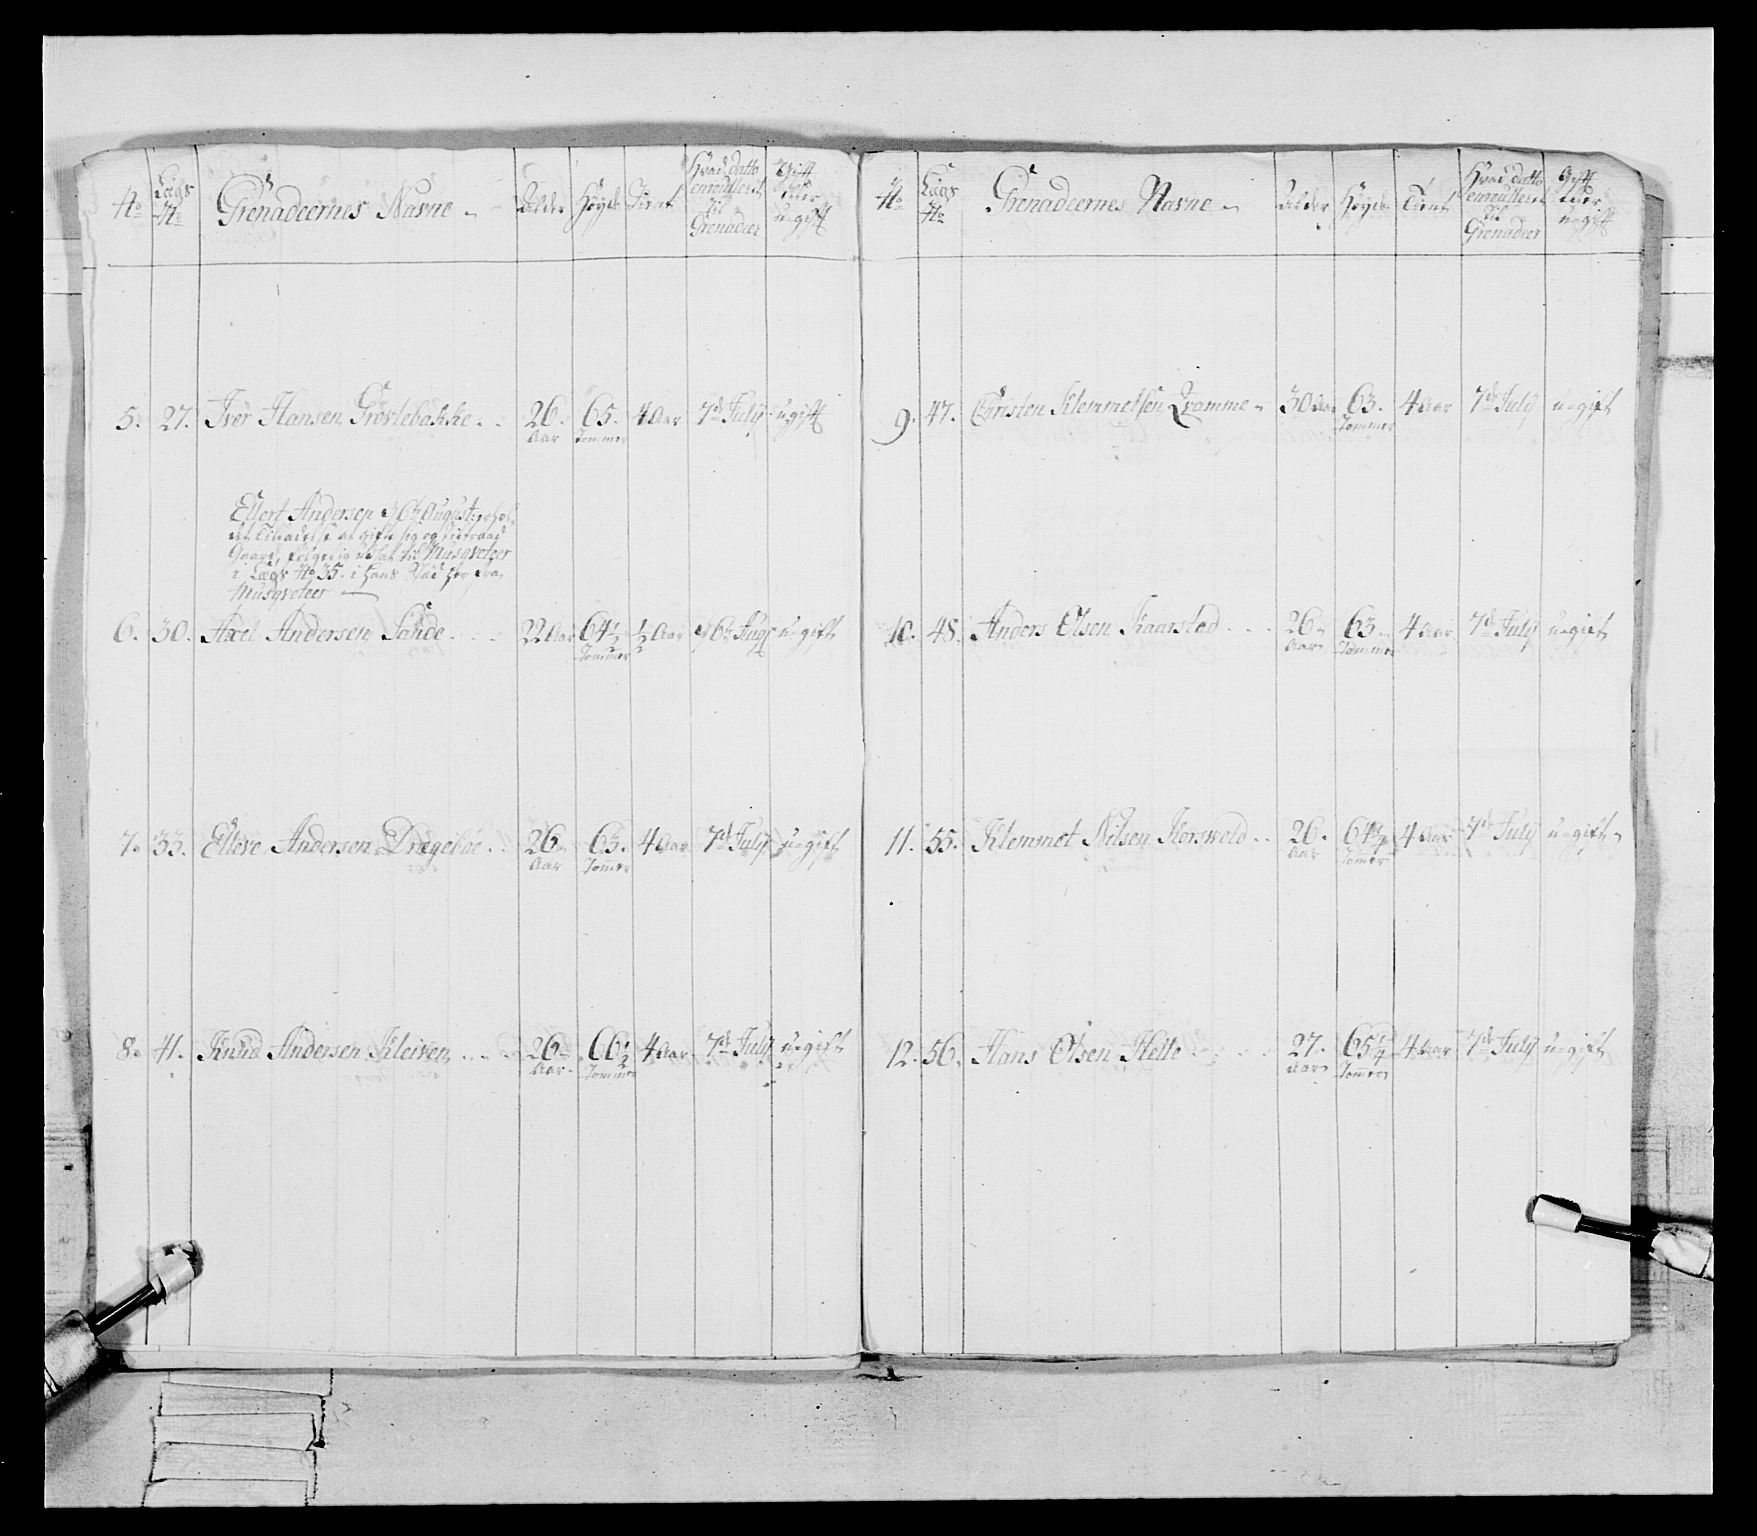 No Lægs No Grenadeernes Navne Alder Høyde Tient Hvad datto enroulleret til Grenadeer Gift eller ugift
5. 27. Iver Hansen Grøslebakke 26 Aar 65. Tommer 4 Aar 7de July ugift
Ellert Andersen d 6te August erhol-
det Tilladelse at gifte sig og
Gaard, følgelig udsat til Musqveteer
i Lægs No 35. i hans Stæd her fra
Musqveteer
6. 30. Axel Andersen Sande 22 Aar 64½ Tommer ½ Aar d 6te Aug ugift
7. 33. Elleve Andersen Drægebøe 26 Aar 63. Tommer 4 Aar 7de July ugift
8. 41. Knud Andersen Kleiven 26 Aar 66½ Tommer 4 Aar 7de July ugift
No Lægs No Grenadeernes Navne Alder Høyde Tient Hvad datto enroulleret til Grenadeer Gift eller ugift
9. 47. Christen Klemmetsen Tramme 30 Aar 63. Tommer 4 Aar 7de July ugift
10. 48. Anders Olsen Kaarstad 26 Aar 63 Tommer 4 Aar 7de July ugift
11. 55. Klemmet Nilsen Korsvold 26. Aar 64½ Tommer 4 Aar 7de July ugift
12. 56. Hans Olsen Helle 27. Aar 65¼ Tommer 4 Aar 7de July ugift